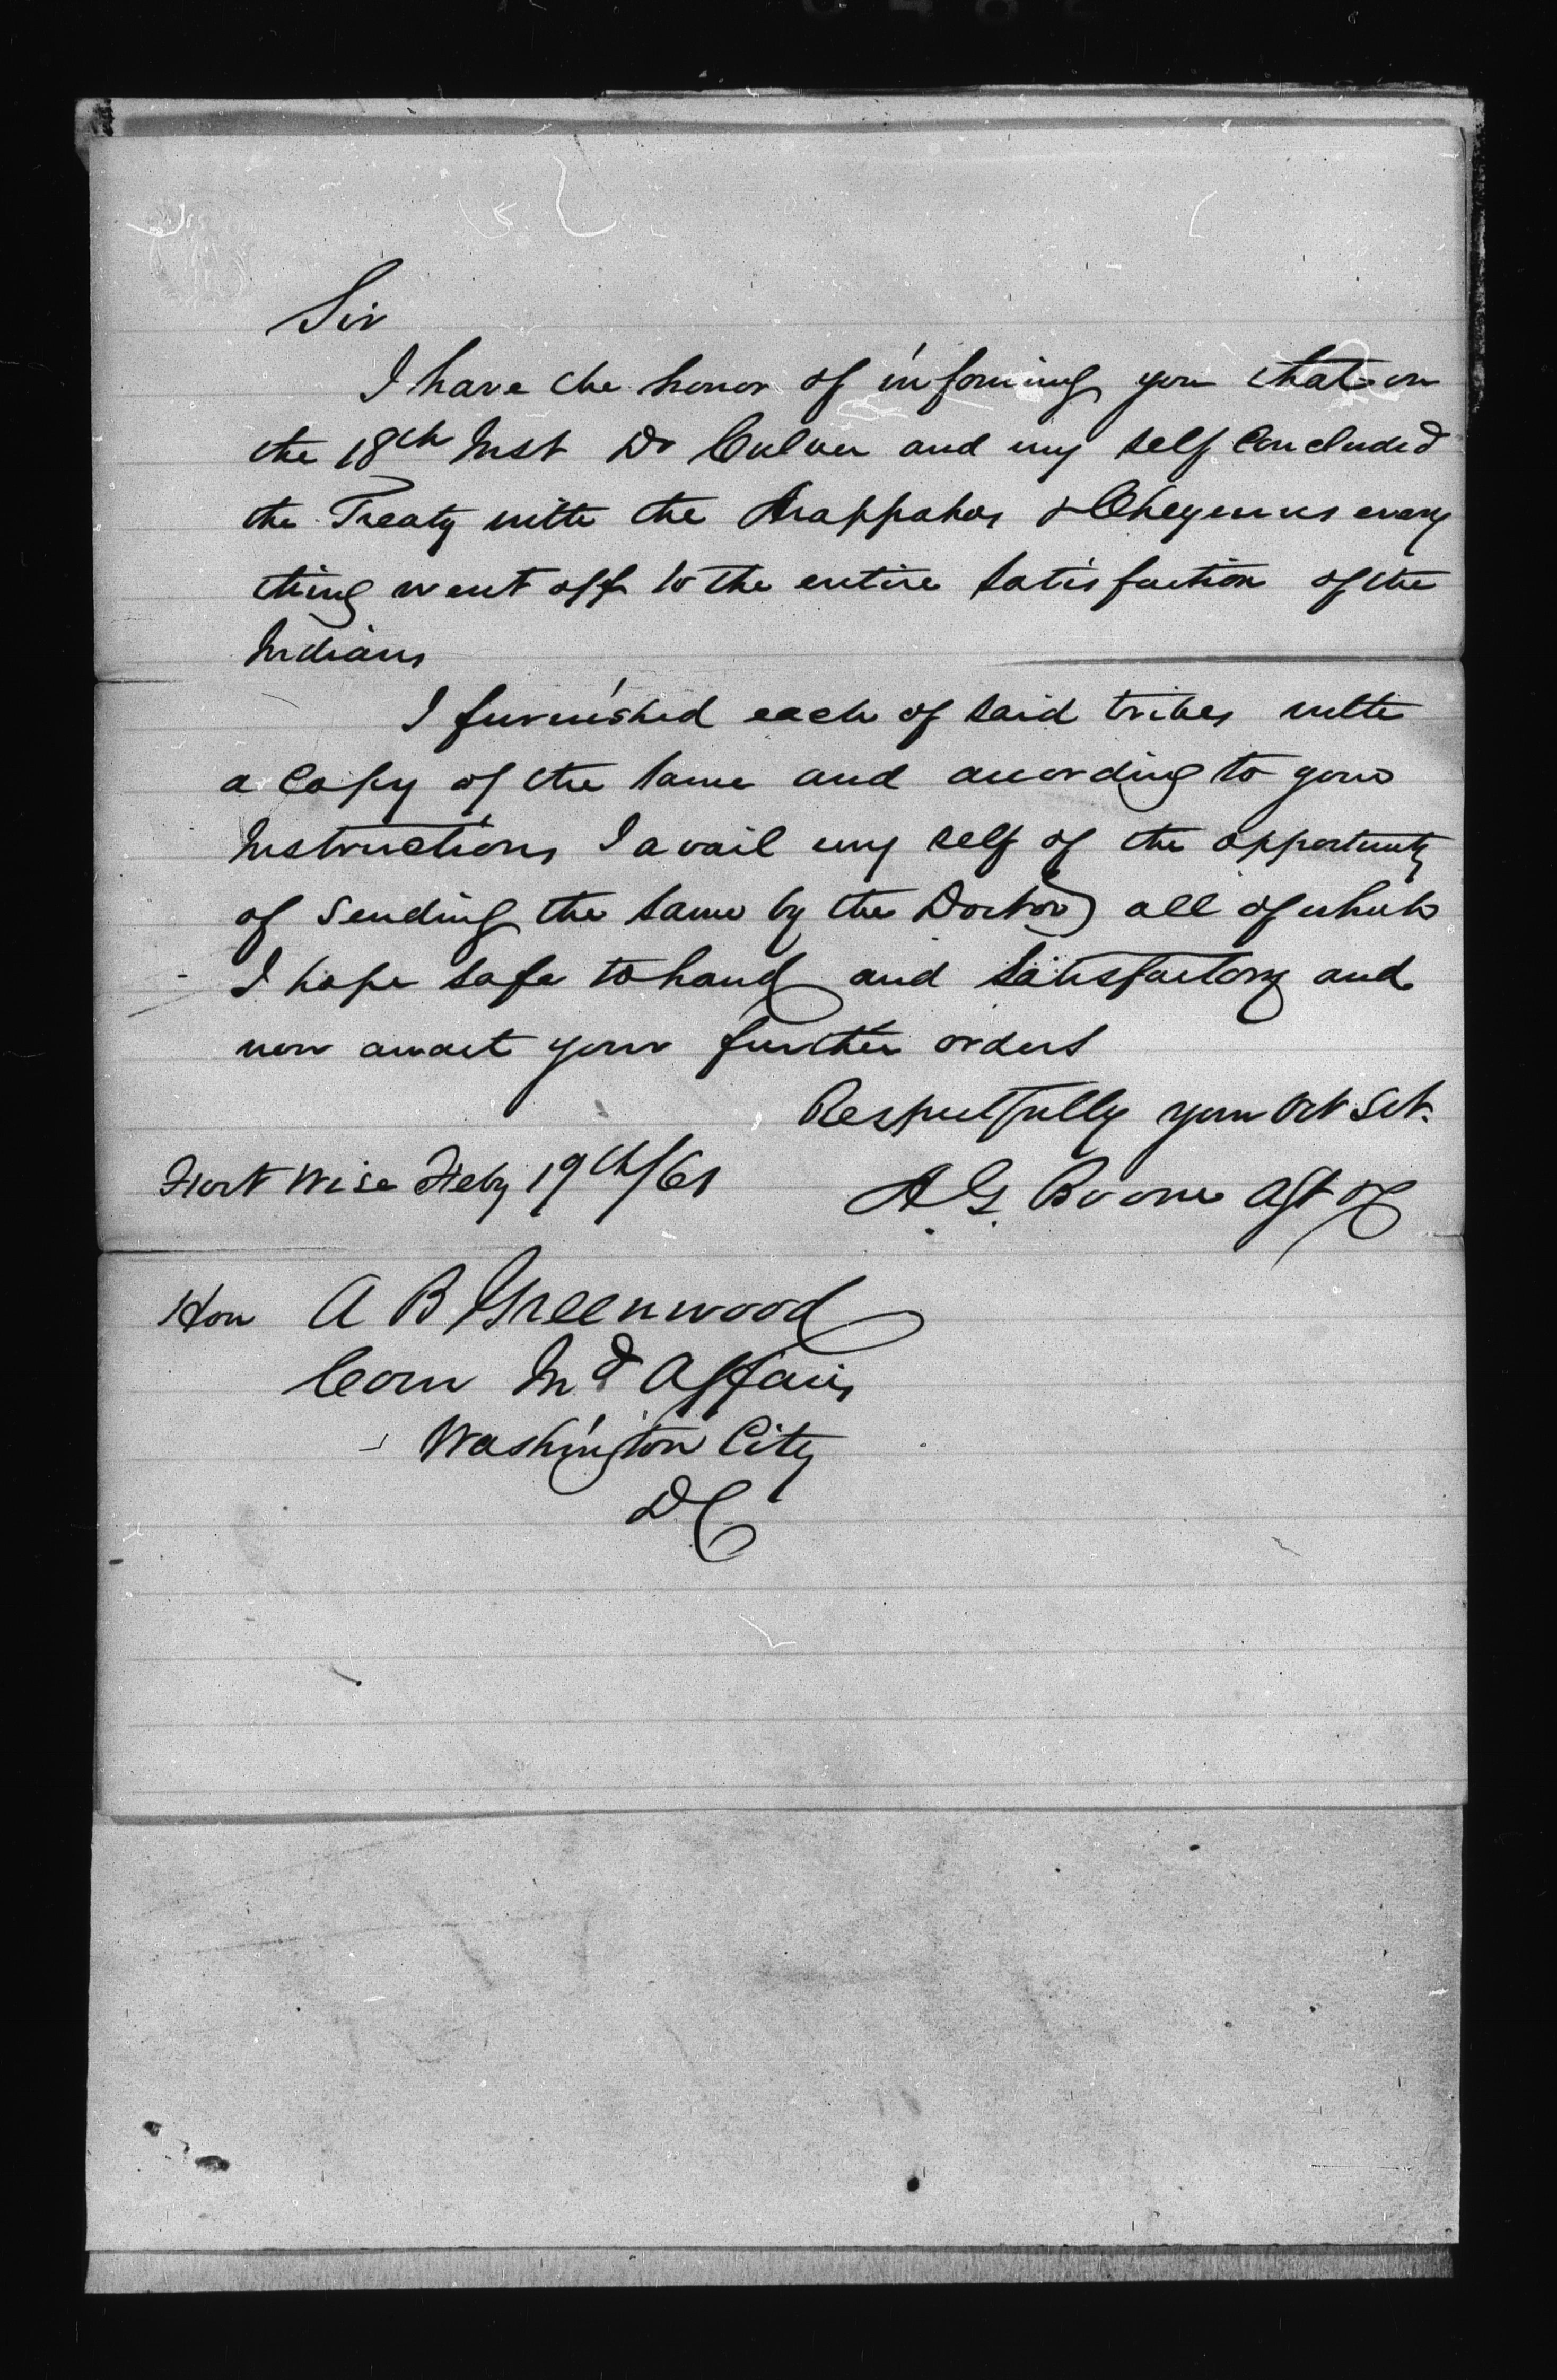 Sir
I have the honor of informing you that on
the 18th Inst Dr Culver and my self Concluded
the Treaty with the Arappahos & Cheyennes every
thing went off to the entire satisfaction of the
Indians
I furnished each of said tribes with
a Copy of the same and according to your
Instructions I avail my self of the opportunity
of sending the same by the Doctor all of which
I hope safe to hand and satisfactory and
now await your further orders
Respectfully your Obt Svt.
Fort Wise Feby 19th/61 A. G. Boone Agt
Hon A B Greenwood
Com Ind Affairs
Washington City
DC